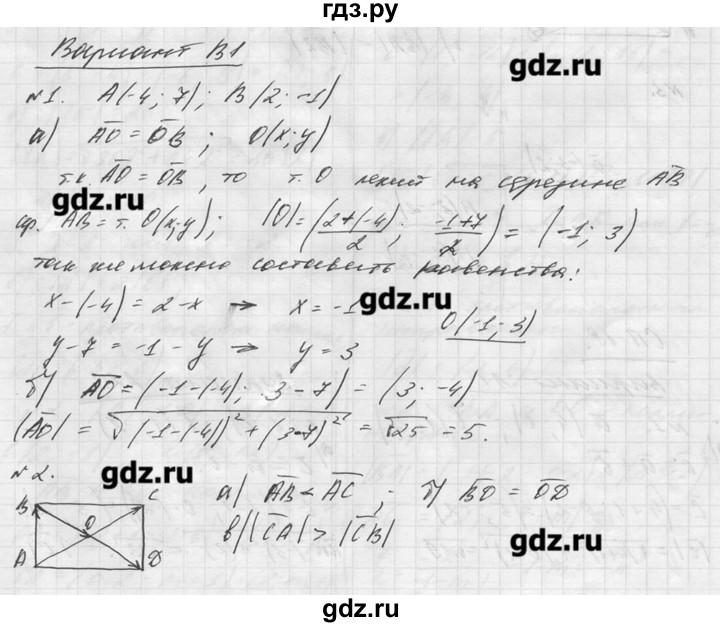 гдз.ру
Вариант В1
gdz.ru
№1. A(-4; 7); B(2; -1)
а) AO = OB; O(x; y)
т.к. AO = OB, то т. O лежит на середине AB
gdz.ru
ср. AB = т. O(x; y); |O| = (2+(-4)/2; -1+7/2) = (-1; 3)
так же можно составить равенства:
x-(-4) = 2-x → x = -1
gdz.ru
O(-1; 3)
y-7 = -1-y → y = 3
б) AO = (-1-(-4); 3-7) = (3; -4)
|AO| = √(-1-(-4))² + (3-7)² = √25 = 5.
№2.
gdz.ru
B C
O
A D
а) AB < AC; б) BO = OD
в) |CA| > |CB|
gdz.ru
gdz.ru